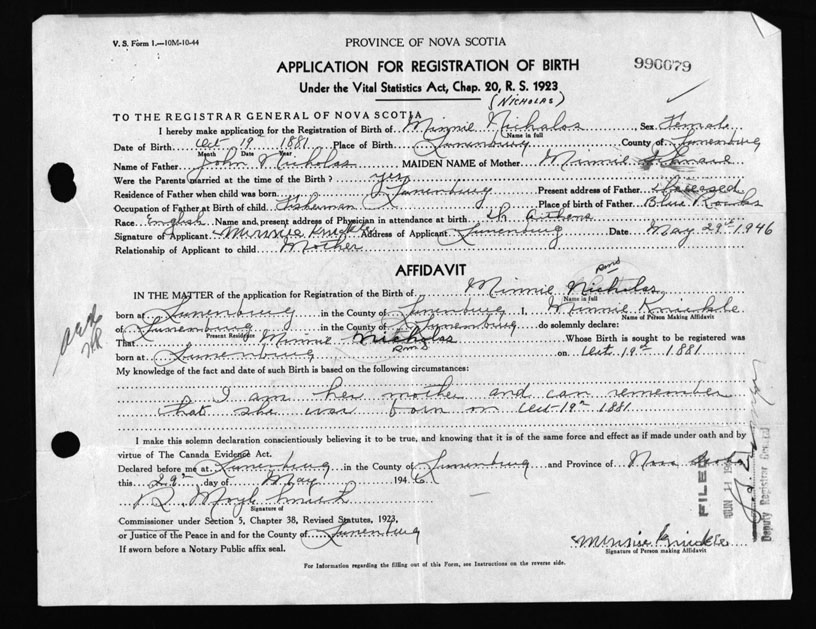 V. S. Form 1.—10M-10-44
PROVINCE OF NOVA SCOTIA
APPLICATION FOR REGISTRATION OF BIRTH
990079
Under the Vital Statistics Act, Chap. 20, R. S. 1923
(NICHOLAS)
TO THE REGISTRAR GENERAL OF NOVA SCOTIA
I hereby make application for the Registration of Birth of Minnie Nicholas, Sex Female
Name in full
Date of Birth Oct 19th 1881 Place of Birth Lunenburg County of Lunenburg
Month Date Year
Name of Father John Nicholas MAIDEN NAME of Mother Minnie
Were the Parents married at the time of the Birth? yes
Residence of Father when child was born Lunenburg Present address of Father deceased
Occupation of Father at Birth of child Fisherman Place of birth of Father Blue Rocks
Race English Name and present address of Physician in attendance at birth Dr.
Signature of Applicant Minnie Knickle Address of Applicant Lunenburg Date May 29th 1946
Relationship of Applicant to child Mother
AFFIDAVIT
IN THE MATTER of the application for Registration of the Birth of Minnie Nicholas
Name in full
born at Lunenburg in the County of Lunenburg I, Minnie Knickle
Name of Person Making Affidavit
of Lunenburg in the County of Lunenburg do solemnly declare:
Present Residence
That Minnie Nicholas Whose Birth is sought to be registered was
born at Lunenburg on Oct. 19th 1881
My knowledge of the fact and date of such Birth is based on the following circumstances:
I am her mother and can remember
that she was born on Oct 19th 1881.
I make this solemn declaration conscientiously believing it to be true, and knowing that it is of the same force and effect as if made under oath and by
virtue of The Canada Evidence Act.
Declared before me at Lunenburg in the County of Lunenburg and Province of Nova Scotia
this 29th day of May 1946
Signature of
Commissioner under Section 5, Chapter 38, Revised Statutes, 1923,
or Justice of the Peace in and for the County of Lunenburg
If sworn before a Notary Public affix seal.
Minnie Knickle
Signature of Person making Affidavit
For Information regarding the filling out of this Form, see Instructions on the reverse side.
FILED
JUN 11
Deputy Registrar General